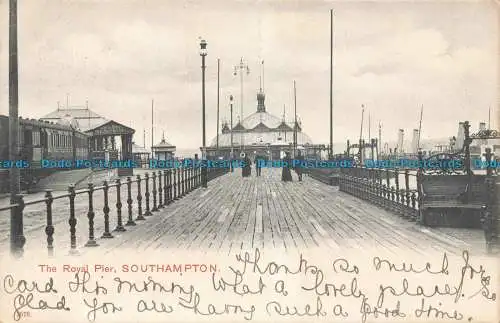 The Royal Pier, SOUTHAMPTON.
Thanks so much for
card this morning what a lovely place. So
Glad you are having such a good time.